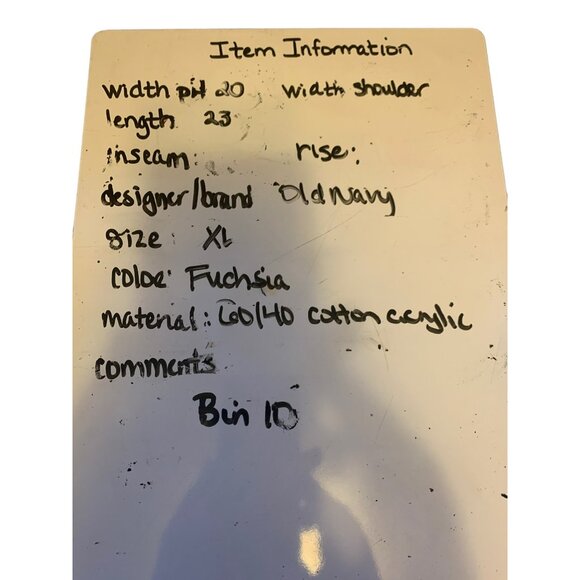 Item Information
width pit 20 width shoulder
length 23
inseam: rise:
designer/brand Old Navy
size XL
color: Fuchsia
material: 60/40 cotton acrylic
comments
Bin 10